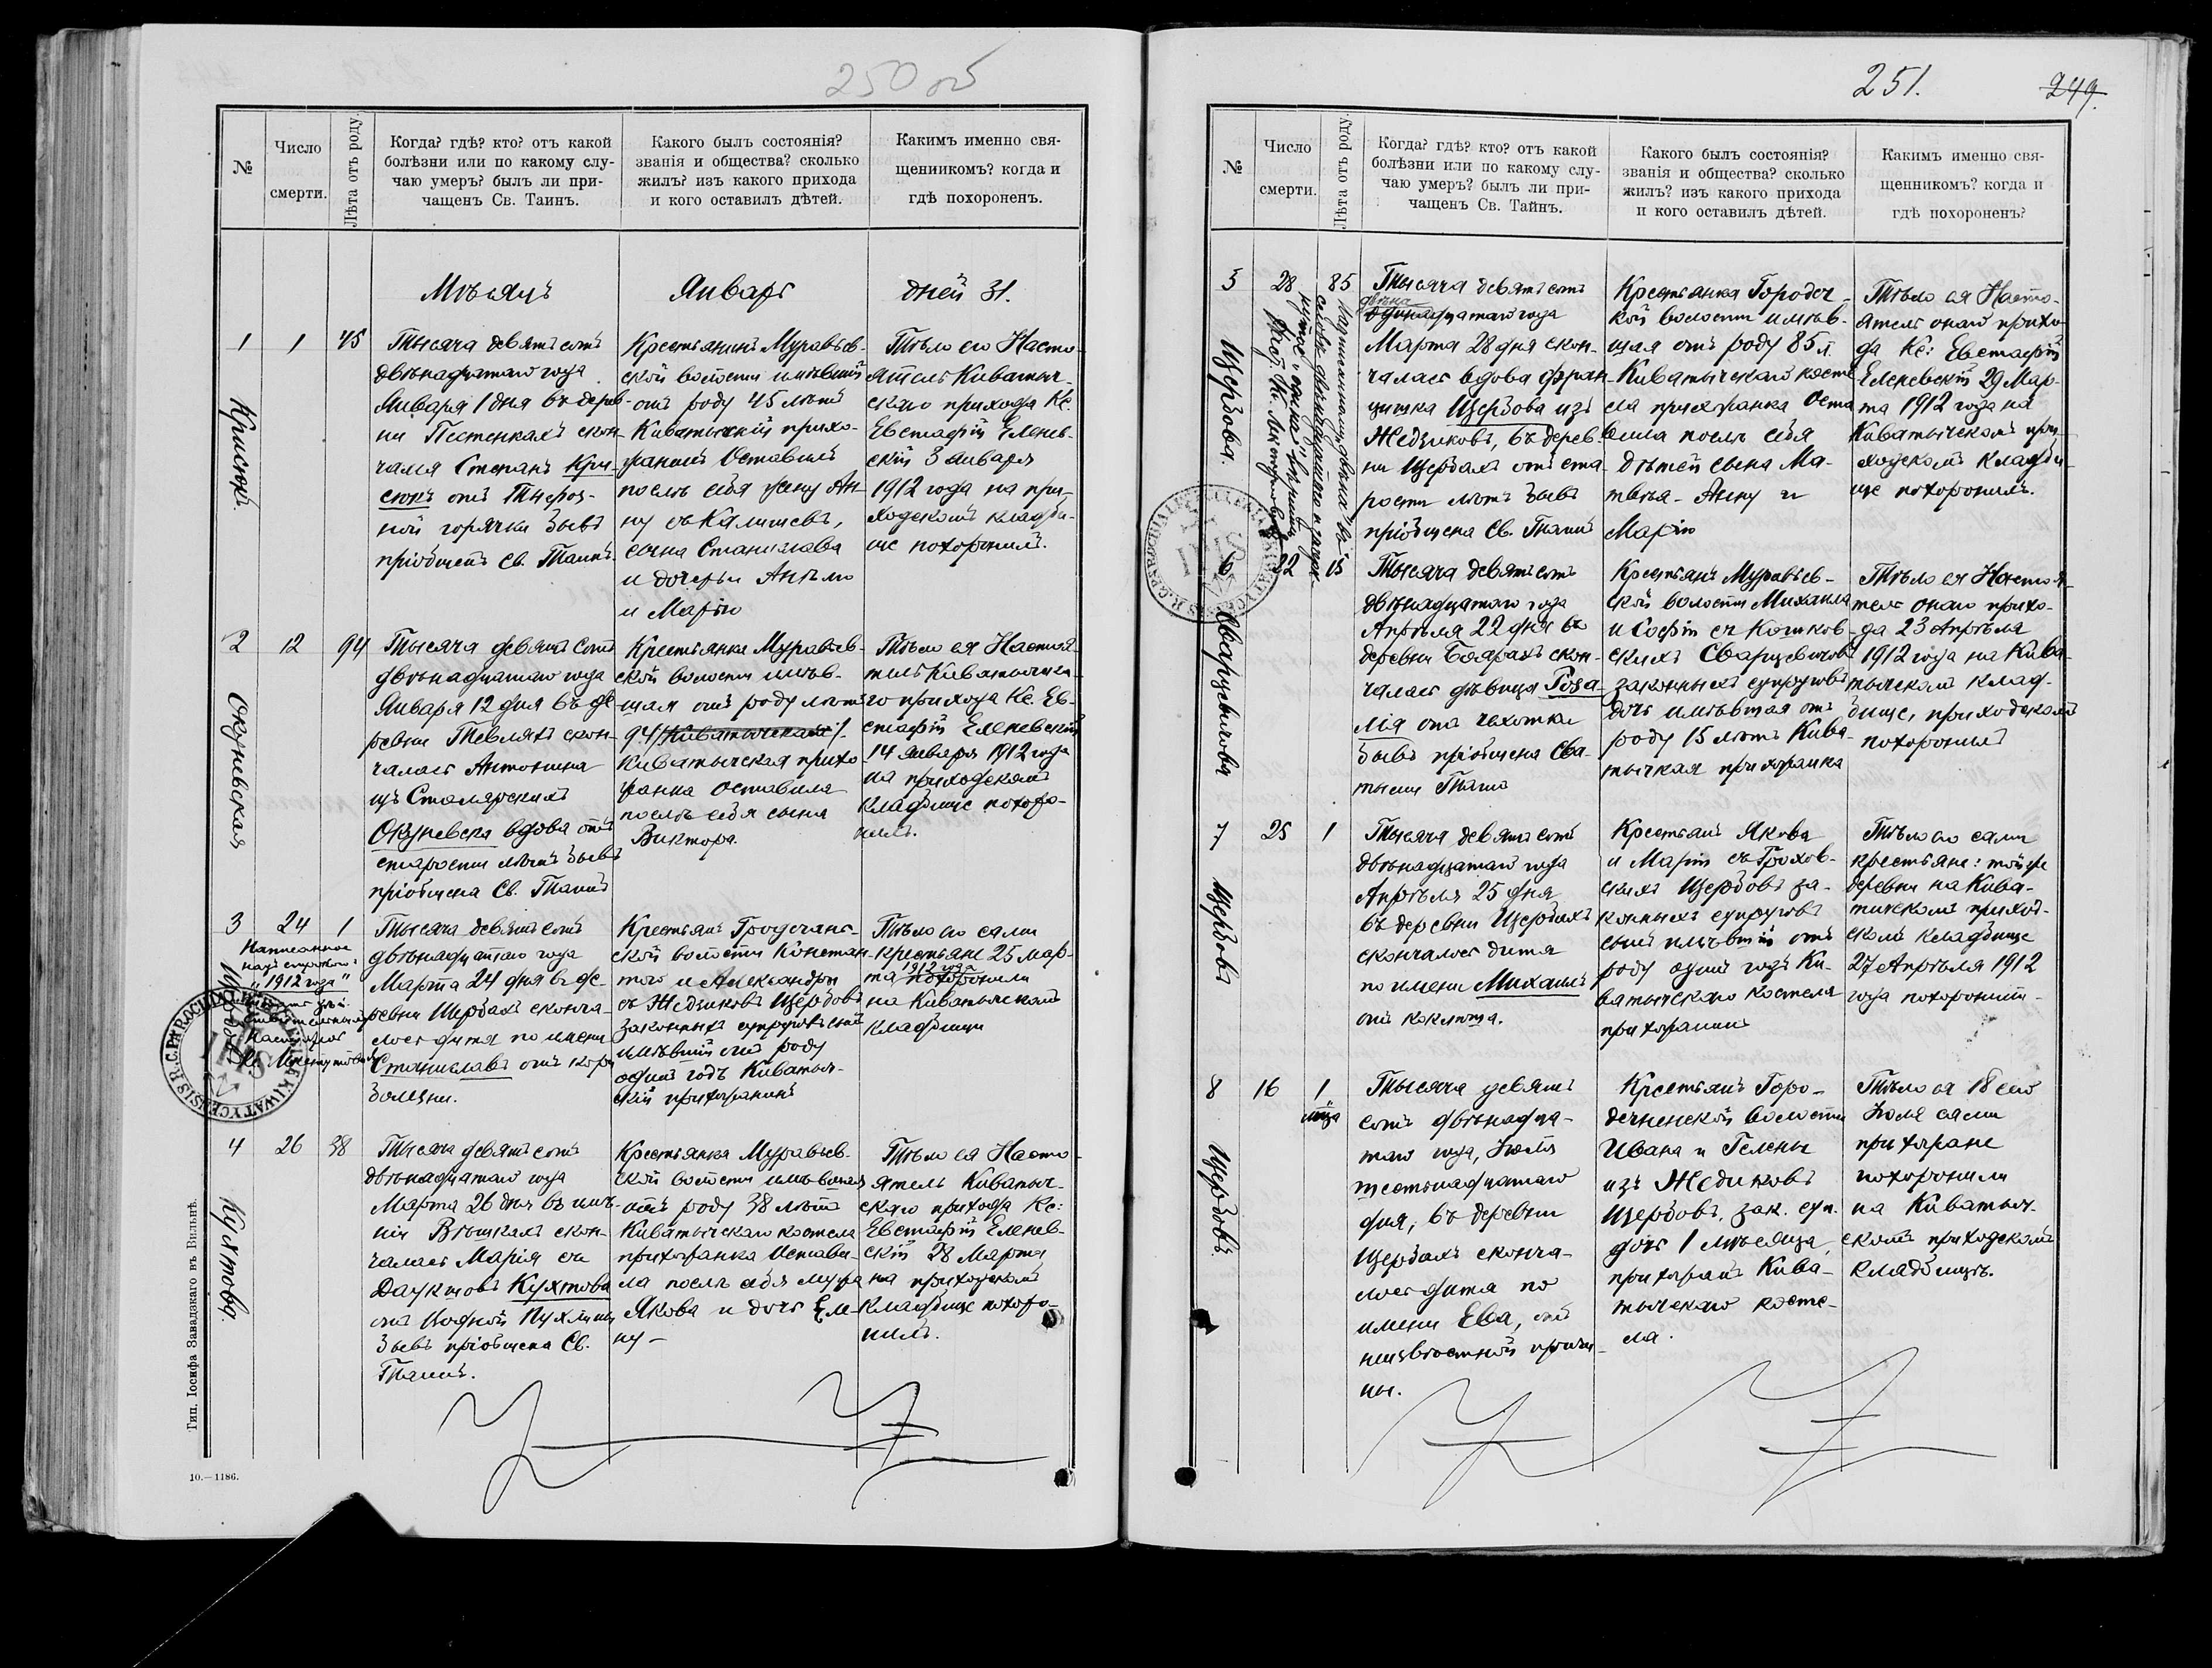 250 об
№
Число
смерти.
Лѣта отъ роду.
Когда? гдѣ? кто? отъ какой
болѣзни или по какому слу-
чаю умеръ? былъ ли при-
чащенъ Св. Таинъ.
Какого былъ состоянія?
званія и общества? сколько
жилъ? изъ какого прихода
и кого оставилъ дѣтей.
Какимъ именно свя-
щенникомъ? когда и
гдѣ похороненъ.
Мѣсяцъ Январь дней 31.
1 1 45
Крисюкъ.
Тысяча девятьсотъ
двѣнадцатаго года
Января 1 дня въ дерев-
ни Пестенкахъ скон-
чался Степанъ Кри-
сюкъ отъ Тифоз-
ной горячки бывъ
пріобщенъ Св. Таинъ
Крестьянинъ Муравьев-
ской волости имѣвшій
отъ роду 45 лѣтъ
Киватыческій прихо-
жанинъ Оставилъ
послѣ себя жену Ан-
ну съ Калишевъ,
сына Станислава
и дочерьи Анѣлю
и Марію
Тѣло его Насто-
ятель Киватыч-
скаго прихода Кс.
Евстафій Еленев-
скій 3 Января
1912 года на при-
ходскомъ кладби-
ще похоронилъ.
2 12 94
Окуневская
Тысяча девятьсотъ
двѣнадцатаго года
Января 12 дня въ де-
ревни Тевляхъ скон-
чалась Антонина
изъ Столярскихъ
Окуневска вдова отъ
старости лѣтъ бывъ
пріобщена Св. Таинъ
Крестьянка Муравьев-
ской волости имѣв-
шая отъ роду лѣтъ
94 /Киватыческая/.
Киватыческая прихо-
жанка оставила
послѣ себя сына
Виктора.
Тѣло ея Настоя-
тель Киватычска-
го прихода Кс. Ев-
стафій Еленевскій
14 января 1912 года
на приходскомъ
кладбище похоро-
нилъ.
3 24 1
Написанное
надъ строкою:
"1912 года"
Настоятель
Щербовъ
Тысяча девятьсотъ
двѣнадцатаго года
Марта 24 дня въ де-
ревни Щербахъ сконча-
лось дитя по имени
Станиславъ отъ кори
болѣзни.
Крестьянъ Гродечанс-
кой волости Констан-
таго и Александри
съ Жедзиковъ Щербовъ
законныхъ супруговъ сынъ
имѣвшій отъ роду
одинъ годъ Киватыч-
скій прихожанинъ
Тѣло его сами
крестьяне 25 Мар-
1912 года
та похоронили
на Киватыческомъ
кладбищи
4 26 38
Кухтова.
Тысяча девятьсотъ
двѣнадцатаго года
Марта 26 дня въ имѣ-
ніи Вѣшкахъ скон-
чалась Марія съ
Дауктовъ Кухтова
отъ водной пухлины
бывъ пріобщена Св.
Таинъ.
Крестьянка Муравьев-
ской волости имѣвшая
отъ роду 38 лѣтъ
Киватыческаго костела
прихожанка Остави-
ла послѣ себя мужа
Якова и дочь Еле-
ну –
Тѣло ея Насто-
ятель Киватыч-
скаго прихода Кс:
Евстафій Еленев-
скій 28 Марта
на приходскомъ
кладбище похоро-
нилъ.
Тип. Іосифа Завадзкаго въ Вильнѣ.
10.—1186.
251.
249.
№
Число
смерти.
Лѣта отъ роду.
Когда? гдѣ? кто? отъ какой
болѣзни или по какому слу-
чаю умеръ? былъ ли при-
чащенъ Св. Тайнъ.
Какого былъ состоянія?
званія и общества? сколько
жилъ? изъ какого прихода
и кого оставилъ дѣтей.
Какимъ именно свя-
щенникомъ? когда и
гдѣ похороненъ?
5 28 85
Щербова.
Тысяча девятьсотъ
двѣна
одинадцатаго года
Марта 28 дня скон-
чалась вдова Фран-
цишка Щербова изъ
Жедзиковъ, въ дерев-
ни Щербахъ отъ ста-
рости лѣтъ бывъ
пріобщена Св. Таинъ
Крестьянка Городеч-
кой волости имѣв-
шая отъ роду 85 л.
Киватыческаго косте-
ла прихожанка Оста
вила послѣ себя
дѣтей сына Ма-
твѣя – Анну и
Марію
Тѣло ея Насто-
ятель онаго прихо-
да Кс: Евстафій
Еленевскій 29 Мар-
та 1912 года на
Киватыческомъ при-
ходскомъ кладби-
ще похоронилъ.
6 22 15
Сварцевичова
Тысяча девятьсотъ
двѣнадцатаго года
Апрѣля 22 дня въ
деревни Боярахъ скон-
чалась дѣвица Роза
лія отъ чахотки
бывъ пріобщена Свя-
тыми Таин
Крестьянъ Муравьев-
ской волости Михаила
и Софіи съ Кошков-
скихъ Сварцевичовъ
законныхъ супруговъ
дочь имѣвшая отъ
роду 15 лѣтъ Кива-
тычкая прихожанка
Тѣло ея Настоя-
тель онаго прихо-
да 23 Апрѣля
1912 года на Кива-
тыческомъ клад-
бище, приходскомъ
похоронилъ
7 25 1
Щербовъ
Тысяча девятьсотъ
двѣнадцатаго года
Апрѣля 25 дня
въ деревни Щербахъ
скончалось дитя
по имени Михаилъ
отъ коклюша.
Крестьянъ Якова
и Маріи съ Грохов-
скихъ Щербовъ за-
конныхъ супруговъ
сынъ имѣвшій отъ
роду одинъ годъ Ки-
ватыческаго костела
прихожанинъ
Тѣло его сами
крестьяне: той же
деревни на Кива-
тическомъ приход-
скомъ кладбище
27 Апрѣля 1912
года похоронили–
8 16 1
мѣца
Щербовъ.
Тысяча девять
сотъ двѣнадца-
таго года, Іюля
шестнадцатаго
дня, въ деревни
Щербахъ сконча-
лось дитя по
имени Ева, отъ
неизвѣстной причи-
ны.
Крестьянъ Горо-
дечненской волости
Ивана и Гелены
изъ Жедиковъ
Щербовъ. зак. суп.
дочь 1 мѣсяца,
прихожанъ Кива-
тыческаго косте-
ла.
Тѣло ея 18 его
Іюля сами
прихожане
похоронили
на Киватыч-
скомъ приходскомъ
кладбищѣ.